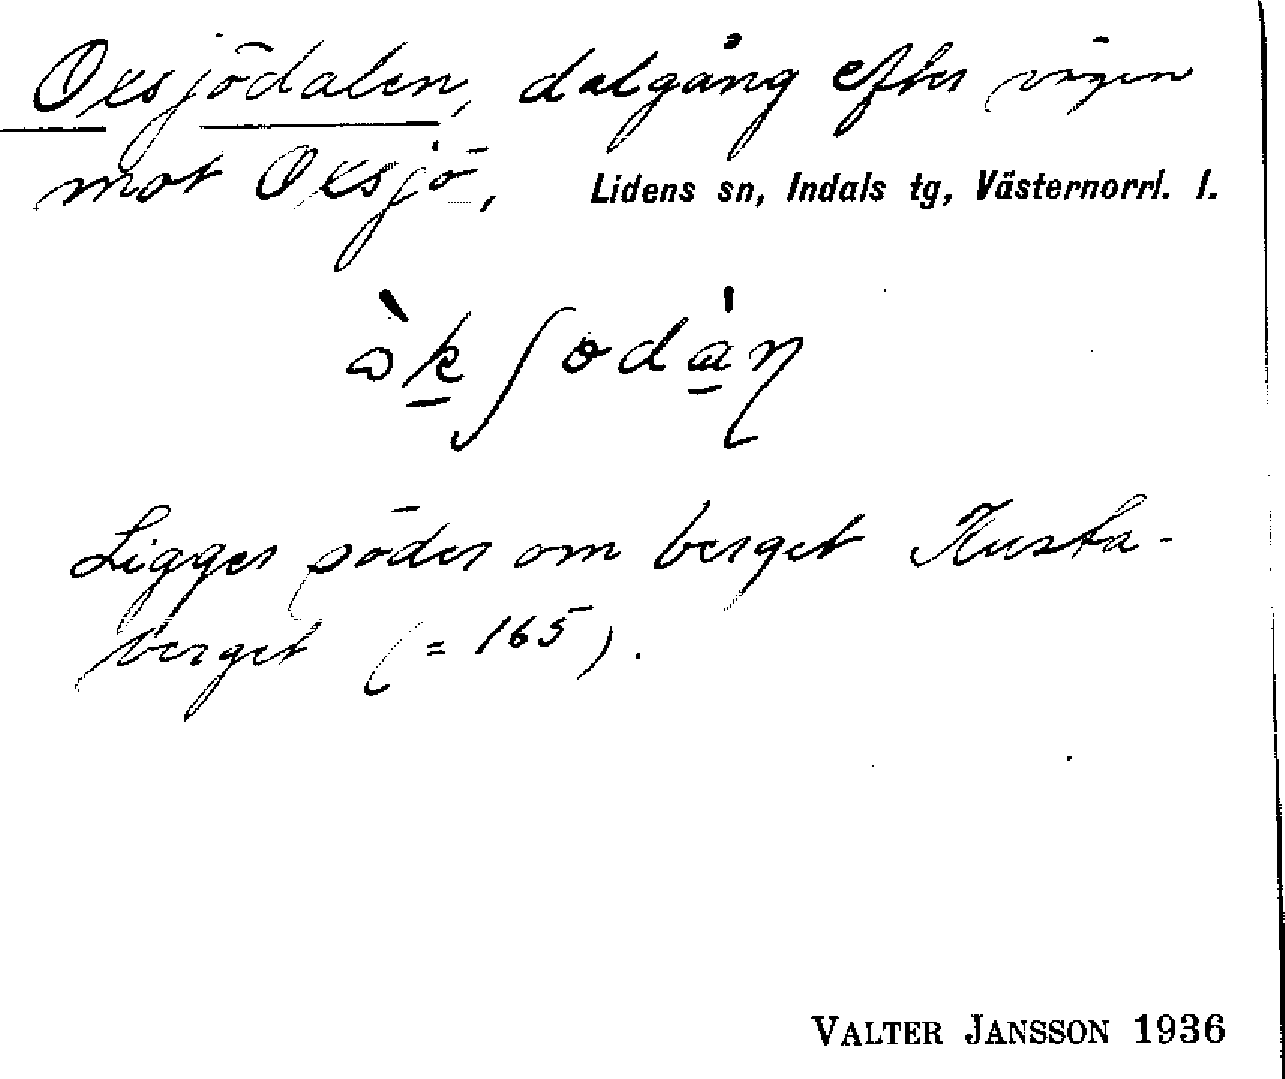 Oxsjödalen, dalgång efter vägen
mot Oxsjö, Lidens sn, Indals tg, Västernorrl. l.
Ligger söder om berget Kusta-
berget (= 165).
VALTER JANSSON 1936